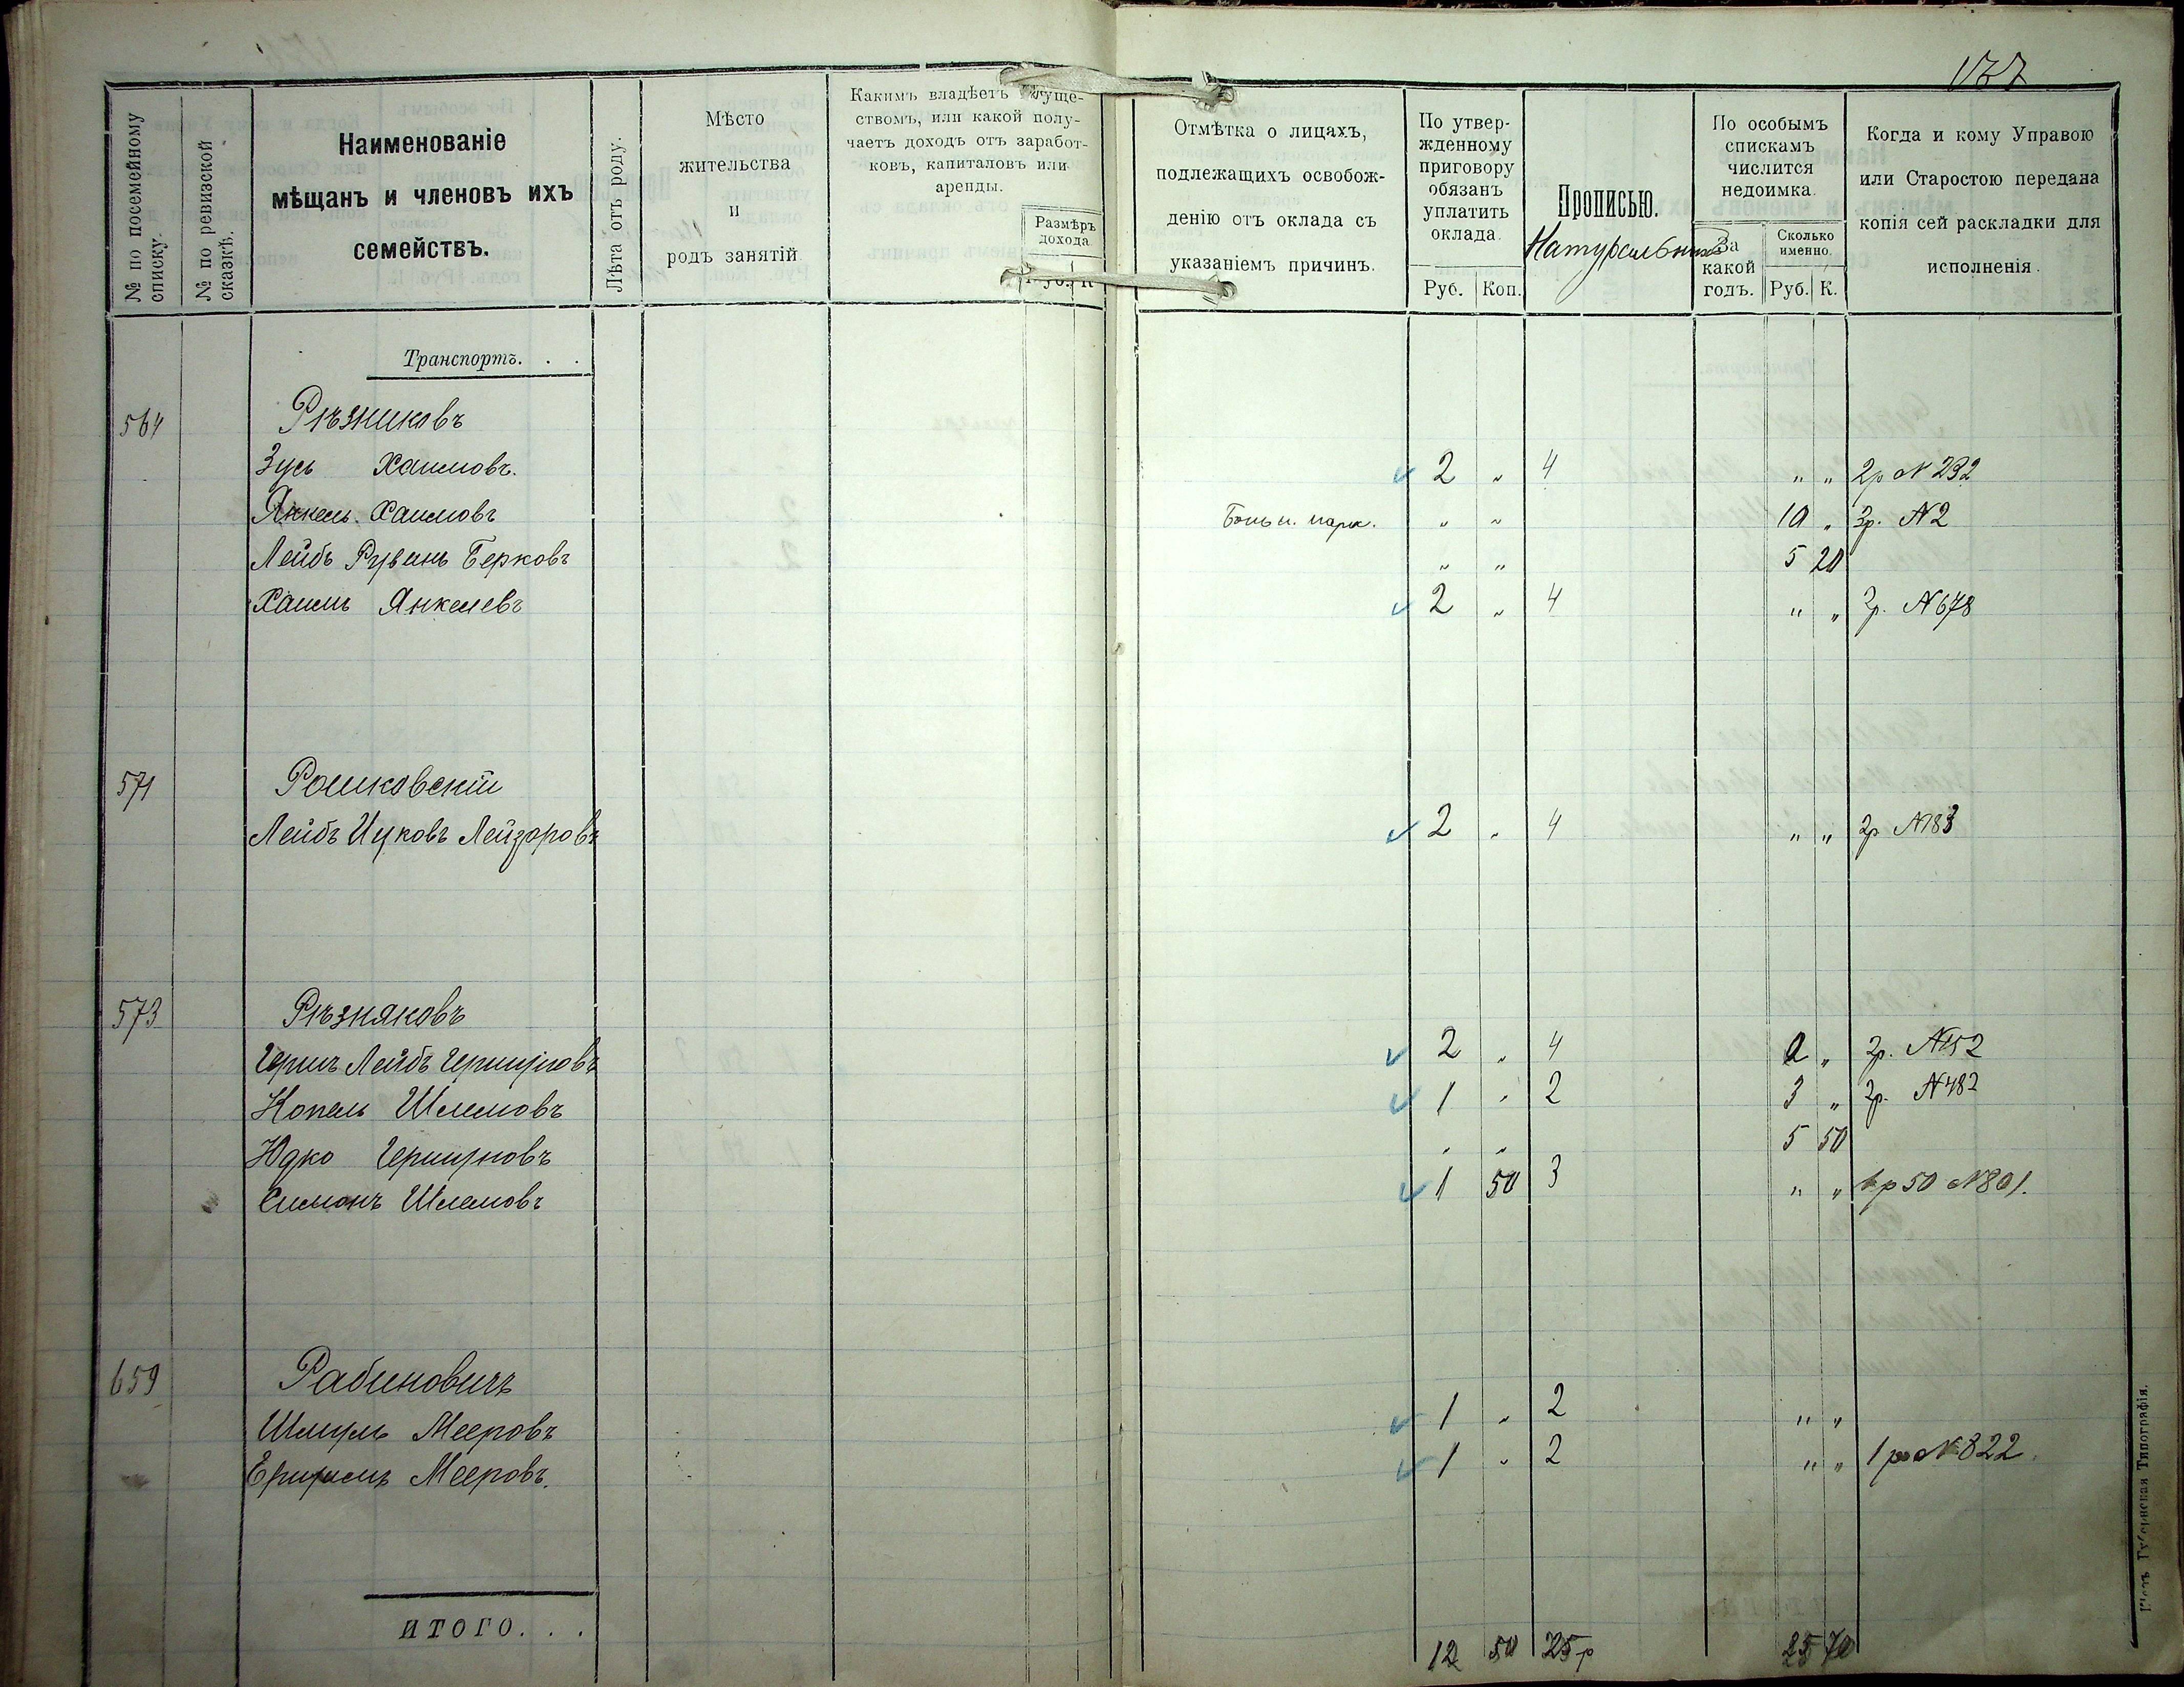 137
№ по посемейному списку.
№ по ревизской сказкѣ.
Наименованіе
мѣщанъ и членовъ ихъ
семействъ.
Лѣта отъ роду.
Мѣсто
жительства
и
родъ занятій
Какимъ владѣетъ имуще-
ствомъ, или какой полу-
чаетъ доходъ отъ заработ-
ковъ, капиталовъ или
аренды.
Размѣръ
дохода
Руб. К
Отмѣтка о лицахъ,
подлежащихъ освобож-
денію отъ оклада съ
указаніемъ причинъ.
По утвер-
жденному
приговору
обязанъ
уплатить
оклада.
Руб. Коп.
Прописью.
По особымъ
спискамъ
числится
недоимка.
За
какой
годъ.
Сколько
именно.
Руб. К.
Когда и кому Управою
или Старостою передана
копія сей раскладки для
исполненія.
Транспортъ. . .
564 Рѣзниковъ
Зусь Хаимовъ. 2 „ 4 „ „ 2р N 232
Янкель Хаимовъ „ „ 10 „ 3р. N2
Лейбъ Рувинъ Берковъ „ „ 5 20
Хаимъ Янкелевъ 2 „ 4 „ „ 2р. N678
571 Рошковскій
Лейбъ Ицковъ Лейзоровъ 2 „ 4 „ „ 2р N183
573 Рѣзняковъ
Гершъ Лейбъ Гершуновъ 2 „ 4 2 „ 2р. N152
Копель Шлемовъ 1 „ 2 3 „ 2р. N482
Юдко Гершуновъ „ „ 5 50
Симонъ Шлемовъ 1 50 3 „ „ 1р50 N801.
659 Рабиновичъ
Шмуль Мееровъ 1 „ 2 „ „
Мееровъ. 1 „ 2 „ „ 1р N822.
ИТОГО. . . 12 50 25р 25 70
Губернская Типографія.